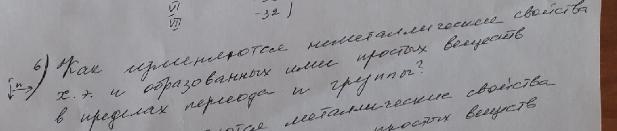 VI
VII
-32)
6) Как изменяются неметаллические свойства
х.э. и образованных ими простых веществ
в пределах периода и группы?
металлические свойства
простых веществ